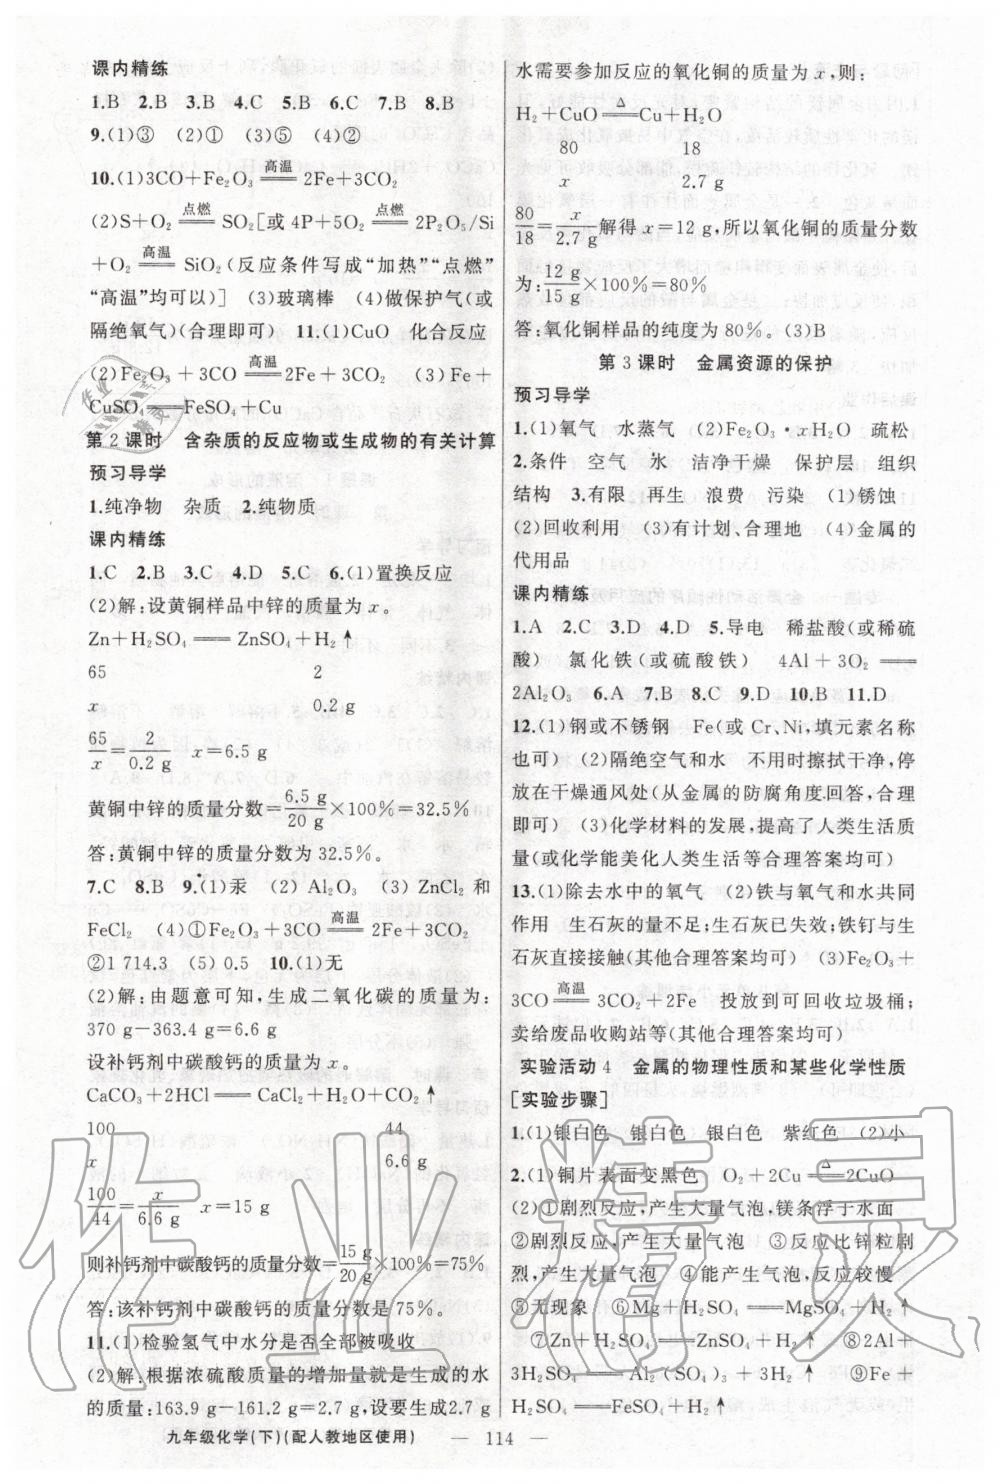 课内精练
1.B 2.B 3.B 4.C 5.B 6.C 7.B 8.B
9.(1)③ (2)① (3)⑤ (4)②
10.(1)3CO+Fe₂O₃ ══高温══ 2Fe+3CO₂
(2)S+O₂ ══点燃══ SO₂[或4P+5O₂ ══点燃══ 2P₂O₅/Si
+O₂ ══高温══ SiO₂(反应条件写成“加热”“点燃”
“高温”均可以)] (3)玻璃棒 (4)做保护气(或
隔绝氧气)(合理即可) 11.(1)CuO 化合反应
(2)Fe₂O₃+3CO ══高温══ 2Fe+3CO₂ (3)Fe+
CuSO₄ ═══ FeSO₄+Cu
第2课时 含杂质的反应物或生成物的有关计算
预习导学
1.纯净物 杂质 2.纯物质
课内精练
1.C 2.B 3.C 4.D 5.C 6.(1)置换反应
(2)解:设黄铜样品中锌的质量为x。
Zn+H₂SO₄ ═══ ZnSO₄+H₂↑
65 2
x 0.2 g
65/x=2/0.2 g x=6.5 g
黄铜中锌的质量分数=6.5 g/20 g×100%=32.5%
答:黄铜中锌的质量分数为32.5%。
7.C 8.B 9.(1)汞 (2)Al₂O₃ (3)ZnCl₂和
FeCl₂ (4)①Fe₂O₃+3CO ══高温══ 2Fe+3CO₂
②1 714.3 (5)0.5 10.(1)无
(2)解:由题意可知,生成二氧化碳的质量为:
370 g-363.4 g=6.6 g
设补钙剂中碳酸钙的质量为x。
CaCO₃+2HCl ═══ CaCl₂+H₂O+CO₂↑
100 44
x 6.6 g
100/44=x/6.6 g x=15 g
则补钙剂中碳酸钙的质量分数=15 g/20 g×100%=75%
答:该补钙剂中碳酸钙的质量分数是75%。
11.(1)检验氢气中水分是否全部被吸收
(2)解:根据浓硫酸质量的增加量就是生成的水
的质量:163.9 g-161.2 g=2.7 g,设要生成2.7 g
水需要参加反应的氧化铜的质量为x,则:
H₂+CuO ══△══ Cu+H₂O
80 18
x 2.7 g
80/18=x/2.7 g解得x=12 g,所以氧化铜的质量分数
为:12 g/15 g×100%=80%
答:氧化铜样品的纯度为80%。(3)B
第3课时 金属资源的保护
预习导学
1.(1)氧气 水蒸气 (2)Fe₂O₃·xH₂O 疏松
2.条件 空气 水 洁净干燥 保护层 组织
结构 3.有限 再生 浪费 污染 (1)锈蚀
(2)回收利用 (3)有计划、合理地 (4)金属的
代用品
课内精练
1.A 2.C 3.D 4.D 5.导电 稀盐酸(或稀硫
酸) 氯化铁(或硫酸铁) 4Al+3O₂ ═══
2Al₂O₃ 6.A 7.B 8.C 9.D 10.B 11.D
12.(1)钢或不锈钢 Fe(或Cr、Ni,填元素名称
也可) (2)隔绝空气和水 不用时擦拭干净,停
放在干燥通风处(从金属的防腐角度回答,合理
即可) (3)化学材料的发展,提高了人类生活质
量(或化学能美化人类生活等合理答案均可)
13.(1)除去水中的氧气 (2)铁与氧气和水共同
作用 生石灰的量不足;生石灰已失效;铁钉与生
石灰直接接触(其他合理答案均可) (3)Fe₂O₃+
3CO ══高温══ 3CO₂+2Fe 投放到可回收垃圾桶;
卖给废品收购站等(其他合理答案均可)
实验活动4 金属的物理性质和某些化学性质
[实验步骤]
1.(1)银白色 银白色 银白色 紫红色 (2)小
2.(1)铜片表面变黑色 O₂+2Cu ══△══ 2CuO
(2)①剧烈反应,产生大量气泡,镁条浮于水面
②剧烈反应,产生大量气泡 ③反应比锌粒剧
烈,产生大量气泡 ④能产生气泡,反应较慢
⑤无现象 ⑥Mg+H₂SO₄ ═══ MgSO₄+H₂↑
⑦Zn+H₂SO₄ ═══ ZnSO₄+H₂↑ ⑧2Al+
3H₂SO₄ ═══ Al₂(SO₄)₃+3H₂↑ ⑨Fe+
H₂SO₄ ═══ FeSO₄+H₂↑
九年级化学(下)(配人教地区使用) — 114 —
作业精灵